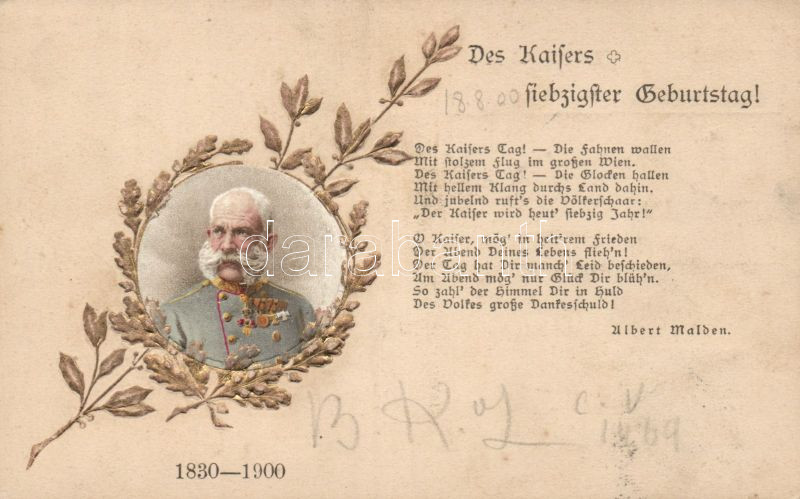 Des Kaisers
18.8.00 siebzigster Geburtstag!
Des Kaisers Tag! — Die Fahnen wallen
Mit stolzem Flug im großen Wien.
Des Kaisers Tag! — Die Glocken hallen
Mit hellem Klang durchs Land dahin.
Und jubelnd ruft's die Völkerschaar:
„Der Kaiser wird heut' siebzig Jahr!"
O Kaiser, mög' in heit'rem Frieden
Der Abend Deines Lebens flieh'n!
Der Tag hat Dir manch' Leid beschieden,
Am Abend mög' nur Glück Dir blüh'n.
So zahl' der Himmel Dir in Huld
Des Volkes große Dankesschuld!
Albert Malden.
darabanth
B. K.
1830—1900